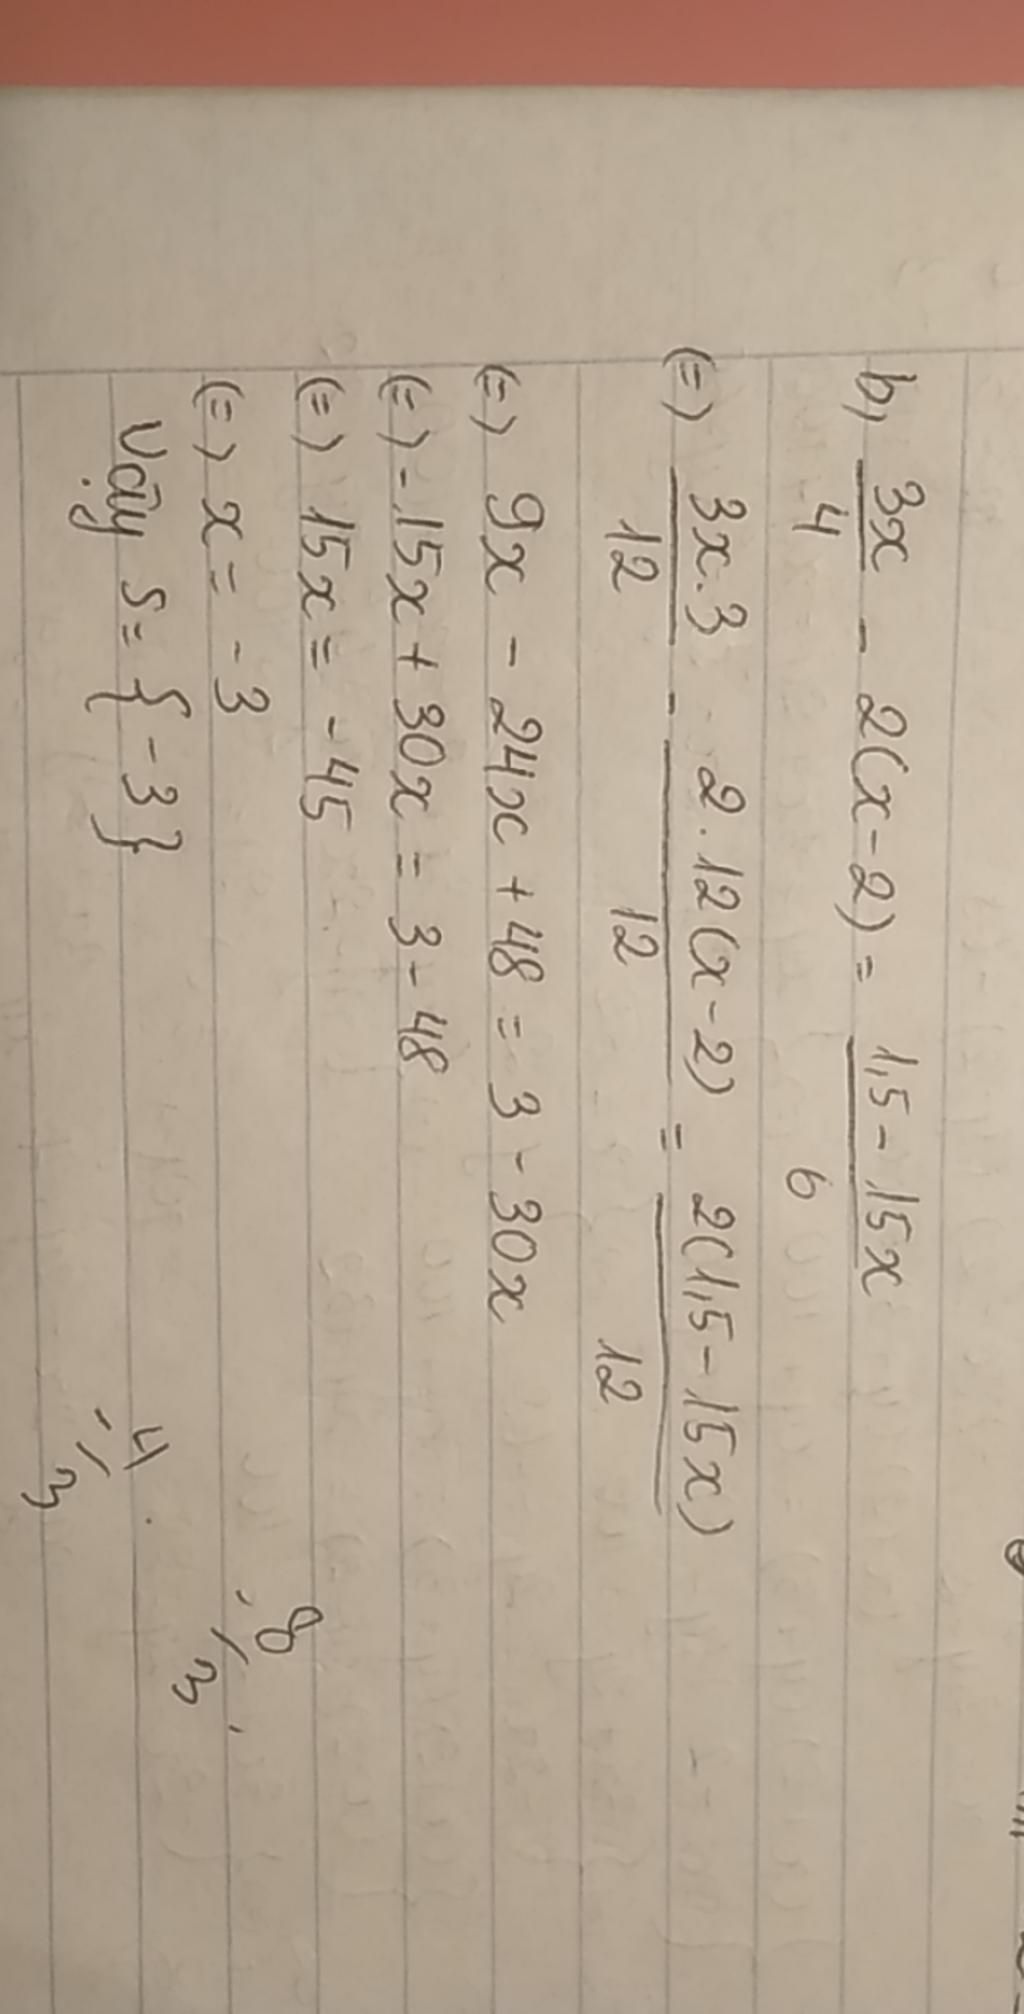 b, 3x/4 - 2(x-2) = 1,5-15x/6
(=) 3x.3/12 - 2.12(x-2)/12 = 2(1,5-15x)/12
(=) 9x - 24x + 48 = 3 - 30x
(=) -15x + 30x = 3 - 48
(=) 15x = -45
(=) x = -3
Vậy S = {-3}